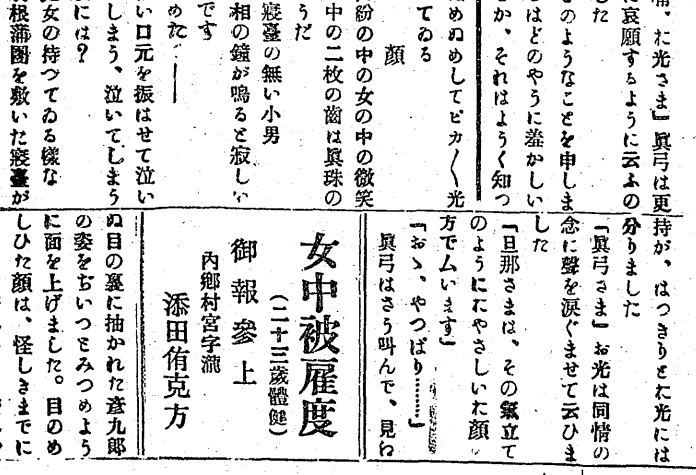 、お光さま』眞弓は更
に哀願するように云ふの
した
のようなことを申しま
はどのやうに羞かしい
か、それはようく知つ
ぬめぬめしてピカ〱光
てゐる
顔
紛の中の女の中の微笑
中の二枚の齒は眞珠の
うだ
寢臺の無い小男
相の鐘が鳴ると寂しい
です
めた――
い口元を振はせて泣い
しまう、泣いてしまう
には?
女の持つてゐる樣な
根蒲團を敷いた寢臺が
持が、はつきりとお光には
分りました
『眞弓さま』お光は同情の
念に聲を涙ぐませて云ひま
した
『旦那さまは、その氣立て
のようにおやさしいお顏
方でムいます』
『おゝ、やつぱり………』
眞弓はさう叫んで、見わ
女中被雇度
(二十三歲體健)
御報參上
內鄕村宮字瀧
添田侑克方
ぬ目の裏に抽かれた彥九郎
の姿をぢいつとみつめよう
に面を上げました。目のめ
しひた顏は、怪しきまでに